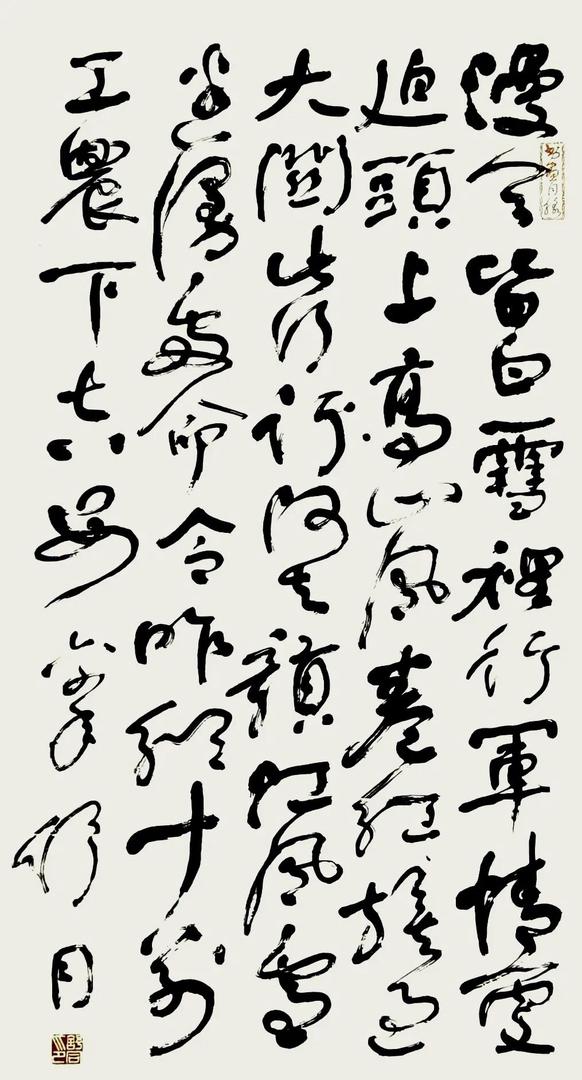 漫天皆白雪裡行軍情更
迫頭上高山風卷紅旗過
大關此行行何去贛江風雪
迷漫處命令昨頒十萬
工農下吉安 舒同